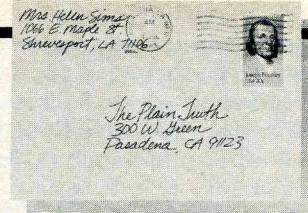 Mrs Helen Sims
1066 E. Maple St.
Shreveport, LA 71106
Joseph Priestley
USA 20c
The Plain Truth
300 W. Green
Pasadena, CA 91123